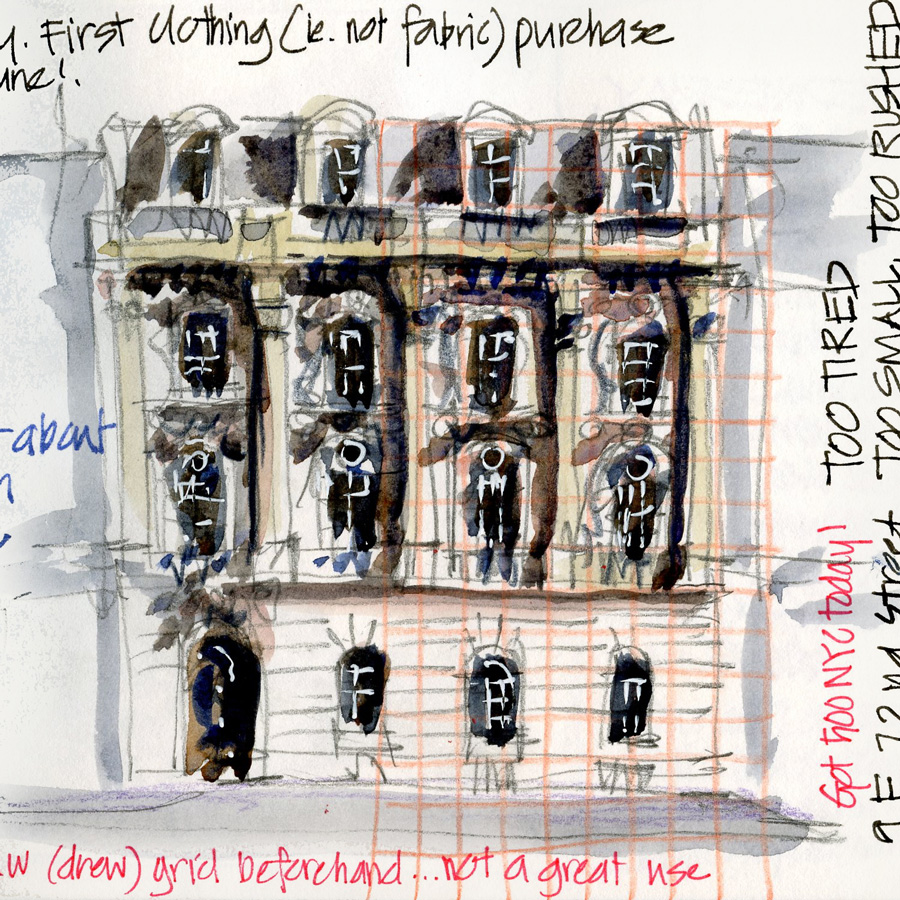 y. First clothing (ie. not fabric) purchase
une!.
-about
n
TOO TIRED
TOO SMALL, TOO RUSHED
Got hoo NYC today!
9 E 72nd Street
aw (drew) grid beforehand...not a great use